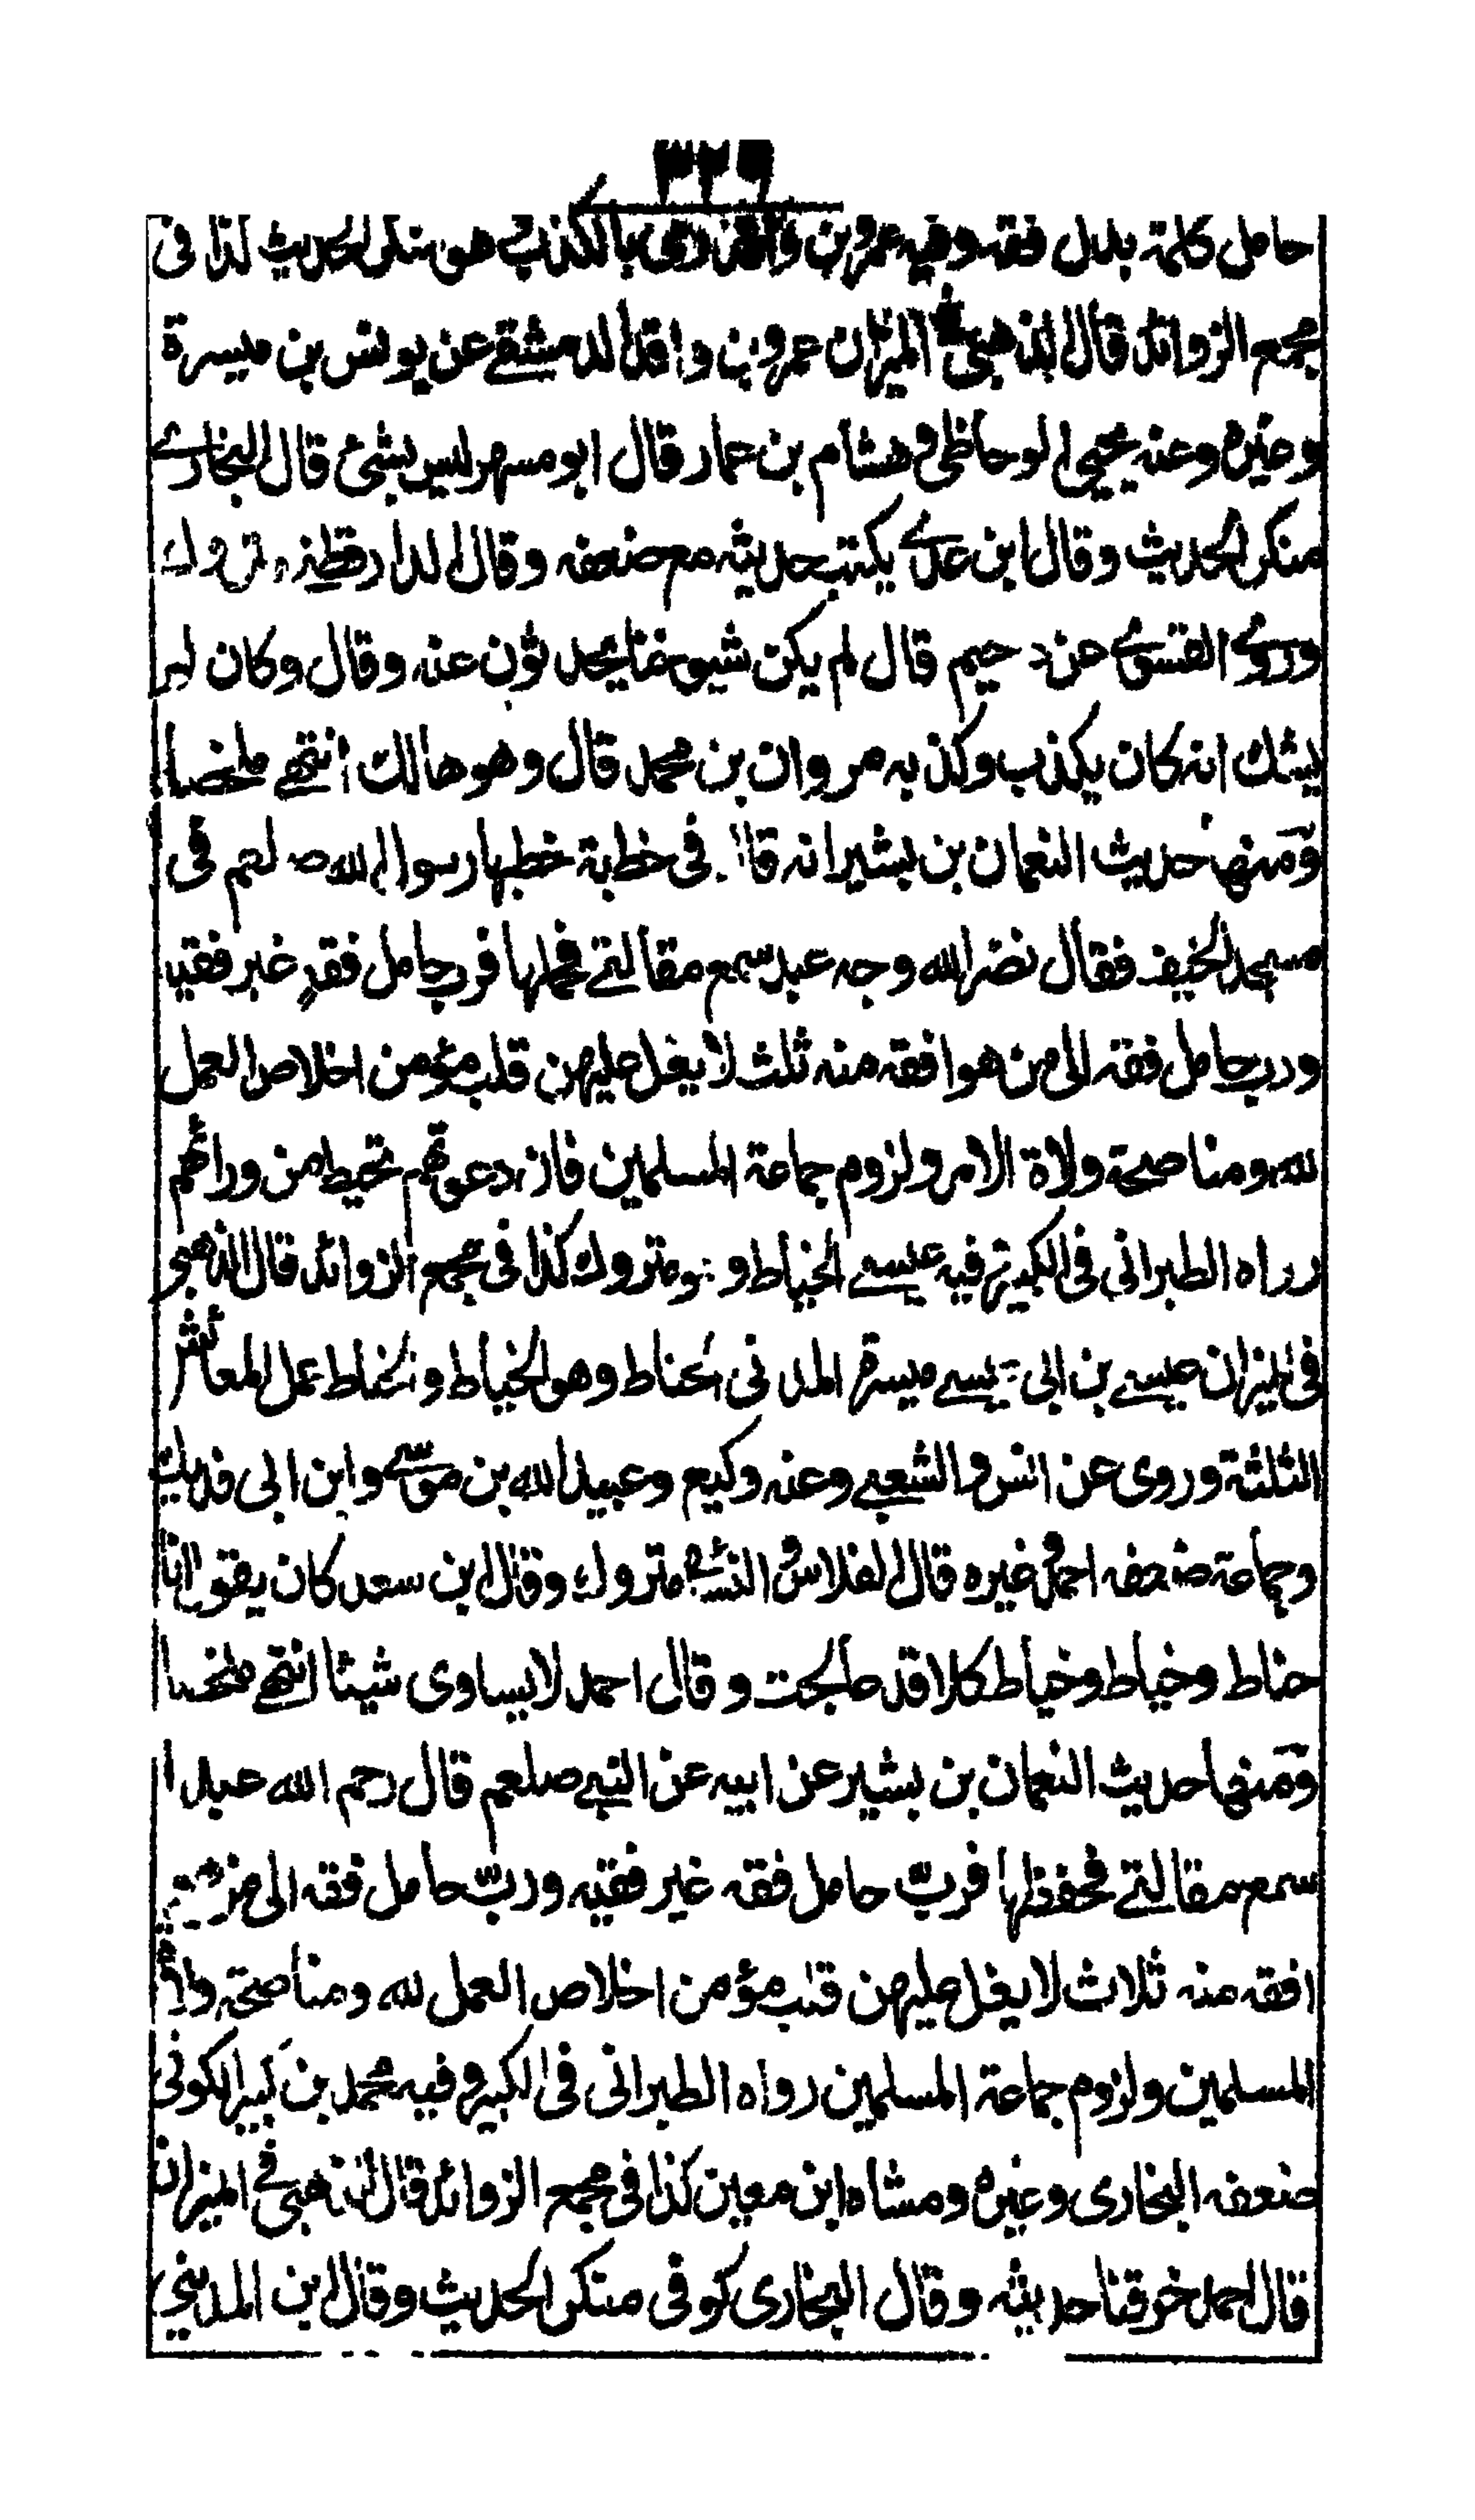 ٣٢٩
حامل كلمة بدل فقه وفيه عمرو بن واقد رمى بالكذب هو منكر الحديث كذا فى
مجمع الزوائد قال الذهبى فى الميزان عمرو بن واقد الدمشقے عن يونس بن ميسرة
وعنه يحيى الوحاظى و هشام بن عمار قال ابو مسهر ليس بشئ قال البخارے
منكر الحديث وقال ابن عدے يكتب حديثه مع ضعفه وقال الدارقطنے متروك
وروے الفسوے عن دحيم قال لم يكن شيوخنا يحدثون عنه وقال وكان لم
يشك انه كان يكذب وكذبه مروان بن محمد قال وهو هالك انتهے ملخصا
ومنها حديث النعمان بن بشير انه قال فى خطبة خطبها رسول الله صلعم فى
مسجد الخيف فقال نضر الله وجه عبد سمع مقالتے فحملها فرب حامل فقه غير فقيه
ورب حامل فقه الى من هو افقه منه ثلث لا يغل عليهن قلب مؤمن اخلاص العمل
لله ومناصحة ولاة الامر ولزوم جماعة المسلمين فان دعوتهم تحيط من ورائهم
رواه الطبرانى فى الكبير وفيه عيسے الخياط وهو متروك كذا فى مجمع الزوائد قال الذهبى
فى الميزان عيسے بن ابى عيسے ميسرة المدنى الحناط وهو الخياط والخباط عمل المعائش
الثلثة وروى عن انس والشعبے وعنه وكيع وعبيد الله بن موسے وابن ابى فديك
وجماعة ضعفه احمد وغيره قال الفلاس والنسائے متروك وقال ابن سعد كان يقول انا
حناط وخياط وخباط كلا قد عالجت وقال احمد لا يساوى شيئا انتهے ملخصا
ومنها حديث النعمان بن بشير عن ابيه عن النبے صلعم قال رحم الله عبدا
سمع مقالتے فحفظها فرب حامل فقه غير فقيه ورب حامل فقه الى من هو
افقه منه ثلاث لا يغل عليهن قلب مؤمن اخلاص العمل لله ومناصحة ولاة
المسلمين ولزوم جماعة المسلمين رواه الطبرانى فى الكبير وفيه محمد بن كثير الكوفى
ضعفه البخارى وغيره ومشاه ابن معين كذا فى مجمع الزوائد قال الذهبى فى الميزان
قال احمد خرقنا حديثه وقال البخارى كوفى منكر الحديث وقال ابن المدينى